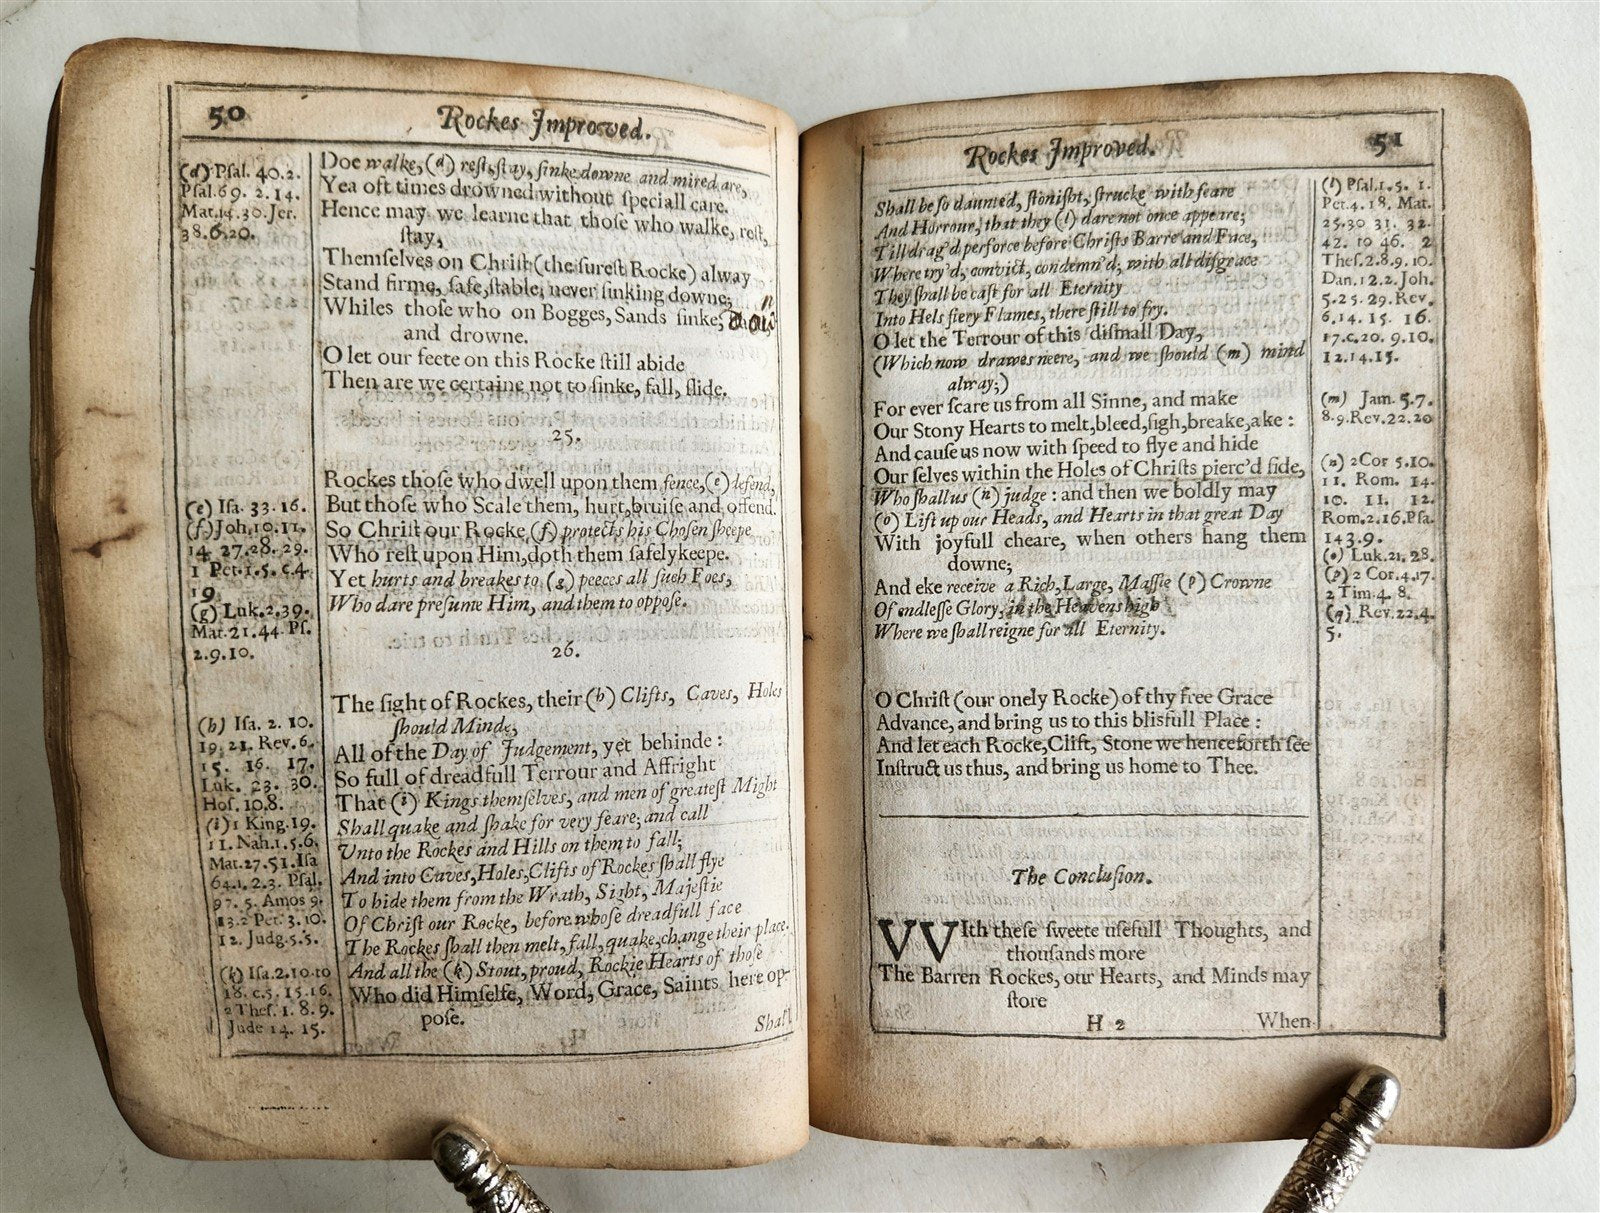 50
Rockes Improved.
(d) Psal. 40.2.
Psal.69. 2.14.
Mat.14.30. Jer.
38.6.20.
Doe walke, (d) rest, stay, sinke downe and mired are,
Yea oft times drowned without speciall care.
Hence may we learne that those who walke, rest,
stay,
Themselves on Christ (the surest Rocke) alway
Stand firme, safe, stable, never sinking downe;
Whiles those who on Bogges, Sands sinke,
and drowne.
O let our feete on this Rocke still abide
Then are we certaine not to sinke, fall, slide.
25.
(e) Isa. 33.16.
(f) Joh. 10.11.
14 27.28. 29.
1 Pet. 1.5. c.4.
19
(g) Luk. 2.39.
Mat. 21.44. Ps.
2.9.10.
Rockes those who dwell upon them fence, (e) defend,
But those who Scale them, hurt, bruise and offend.
So Christ our Rocke (f) protects his Chosen sheepe
Who rest upon Him, doth them safely keepe.
Yet hurts and breakes to (g) peeces all such Foes,
Who dare presume Him, and them to oppose.
26.
(h) Isa. 2. 10.
19. 21. Rev. 6.
15. 16. 17.
Luk. 23. 30.
Hos. 10.8.
(i) 1 King. 19.
11. Nah. 1.5.6.
Mat. 27.51. Isa
64.1. 2.3. Psal.
97. 5. Amos 9.
13. 2 Pet. 3. 10.
12. Judg. 5.5.
(k) Isa. 2.10. to
18. c.5. 15.16.
2 Thes. 1. 8. 9.
Jude 14. 15.
The sight of Rockes, their (h) Clifts, Caves, Holes
should Minde,
All of the Day of Judgement, yet behinde :
So full of dreadfull Terrour and Affright
That (i) Kings themselves, and men of greatest Might
Shall quake and shake for very feare; and call
Unto the Rockes and Hills on them to fall;
And into Caves, Holes, Clifts of Rockes shall flye
To hide them from the Wrath, Sight, Majestie
Of Christ our Rocke, before whose dreadfull face
The Rockes shall then melt, fall, quake, change their place.
And all the (k) Stout, proud, Rockie Hearts of those
Who did Himselfe, Word, Grace, Saints here op-
pose.
Shall
Rockes Improved.
51
Shall be so daunted, stonisht, strucke with feare
And Horrour, that they (l) dare not once appeare;
Till drag'd perforce before Christs Barre and Face,
Where try'd, convict, condemn'd; with all disgrace
They shall be cast for all Eternity
Into Hels fiery Flames, there still to fry.
O let the Terrour of this dismall Day,
(Which now drawes neere, and we should (m) mind
alway;)
For ever scare us from all Sinne, and make
Our Stony Hearts to melt, bleed, sigh, breake, ake :
And cause us now with speed to flye and hide
Our selves within the Holes of Christs pierc'd side,
Who shall us (n) judge : and then we boldly may
(o) Lift up our Heads, and Hearts in that great Day
With joyfull cheare, when others hang them
downe;
And eke receive a Rich, Large, Massie (p) Crowne
Of endlesse Glory, in the Heavens high
Where we shall reigne for all Eternity.
O Christ (our onely Rocke) of thy free Grace
Advance, and bring us to this blisfull Place :
And let each Rocke, Clift, Stone we henceforth see
Instruct us thus, and bring us home to Thee.
(l) Psal. 1. 5. 1.
Pet. 4. 18. Mat.
25.30 31. 32.
42. to 46. 2
Thes. 2.8.9.10.
Dan. 12.2. Joh.
5.25. 29. Rev.
6.14. 15. 16.
17. c. 20. 9.10.
12.14.15.
(m) Jam. 5.7.
8.9. Rev. 22.20
(n) 2 Cor 5.10.
11. Rom. 14.
10. 11. 12.
Rom. 2.16. Psa.
143.9.
(o) Luk. 21. 28.
(p) 2 Cor. 4.17.
2 Tim. 4. 8.
(q) Rev. 22.4.
5.
The Conclusion.
WIth these sweete usefull Thoughts, and
thousands more
The Barren Rockes, our Hearts, and Minds may
store
H 2
When